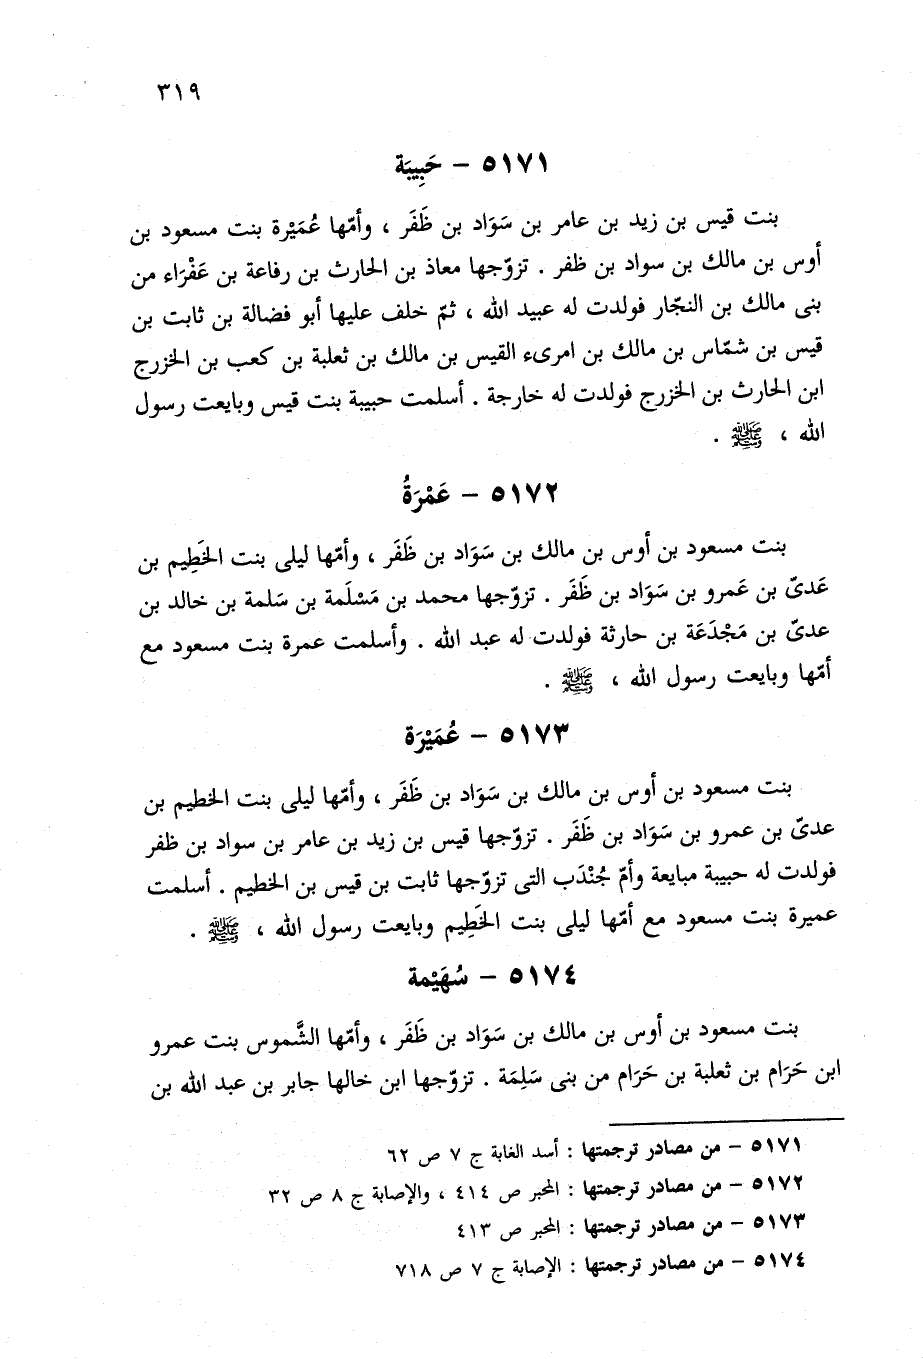 ٣١٩
٥١٧١ - حَبِيبَة
بنت قيس بن زيد بن عامر بن سَوَاد بن ظَفَر ، وأمّها عُمَيْرة بنت مسعود بن
أوس بن مالك بن سواد بن ظفر . تزوّجها معاذ بن الحارث بن رفاعة بن عَفْرَاء من
بنى مالك بن النجّار فولدت له عبيد الله ، ثمّ خلف عليها أبو فضالة بن ثابت بن
قيس بن شمّاس بن مالك بن امرىء القيس بن مالك بن ثعلبة بن كعب بن الخزرج
ابن الحارث بن الخزرج فولدت له خارجة . أسلمت حبيبة بنت قيس وبايعت رسول
الله ، ﷺ .
٥١٧٢ - عَمْرَةُ
بنت مسعود بن أوس بن مالك بن سَوَاد بن ظَفَر ، وأمّها ليلى بنت الخَطِيم بن
عَدىّ بن عَمرو بن سَوَاد بن ظَفَر . تزوّجها محمد بن مَسْلَمة بن سَلمة بن خالد بن
عدىّ بن مَجْدَعَة بن حارثة فولدت له عبد الله . وأسلمت عمرة بنت مسعود مع
أمّها وبايعت رسول الله ، ﷺ .
٥١٧٣ - عُمَيْرَة
بنت مسعود بن أوس بن مالك بن سَوَاد بن ظَفَر ، وأمّها ليلى بنت الخطيم بن
عدىّ بن عمرو بن سَوَاد بن ظَفَر . تزوّجها قيس بن زيد بن عامر بن سواد بن ظفر
فولدت له حبيبة مبايعة وأمّ جُنْدَب التى تزوّجها ثابت بن قيس بن الخطيم . أسلمت
عميرة بنت مسعود مع أمّها ليلى بنت الخَطِيم وبايعت رسول الله ، ﷺ .
٥١٧٤ - سُهَيْمة
بنت مسعود بن أوس بن مالك بن سَوَاد بن ظَفَر ، وأمّها الشَّموس بنت عمرو
ابن حَرَام بن ثعلبة بن حَرَام من بنى سَلِمَة . تزوّجها ابن خالها جابر بن عبد الله بن
٥١٧١ - من مصادر ترجمتها : أسد الغابة ج ٧ ص ٦٢
٥١٧٢ - من مصادر ترجمتها : المحبر ص ٤١٤ ، والإصابة ج ٨ ص ٣٢
٥١٧٣ - من مصادر ترجمتها : المحبر ص ٤١٣
٥١٧٤ - من مصادر ترجمتها : الإصابة ج ٧ ص ٧١٨